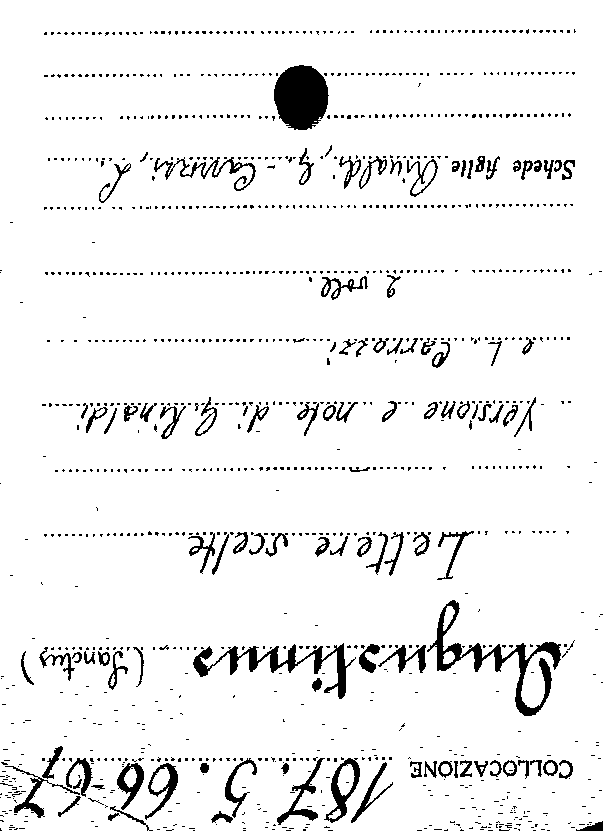 COLLOCAZIONE 187.5.66-67
Augustinus (Sanctus)
Lettere scelte
Versione e note di G. Rinaldi
e L. Carrozzi
2 voll.
Schede figlie Rinaldi, G. - Carrozzi, L.